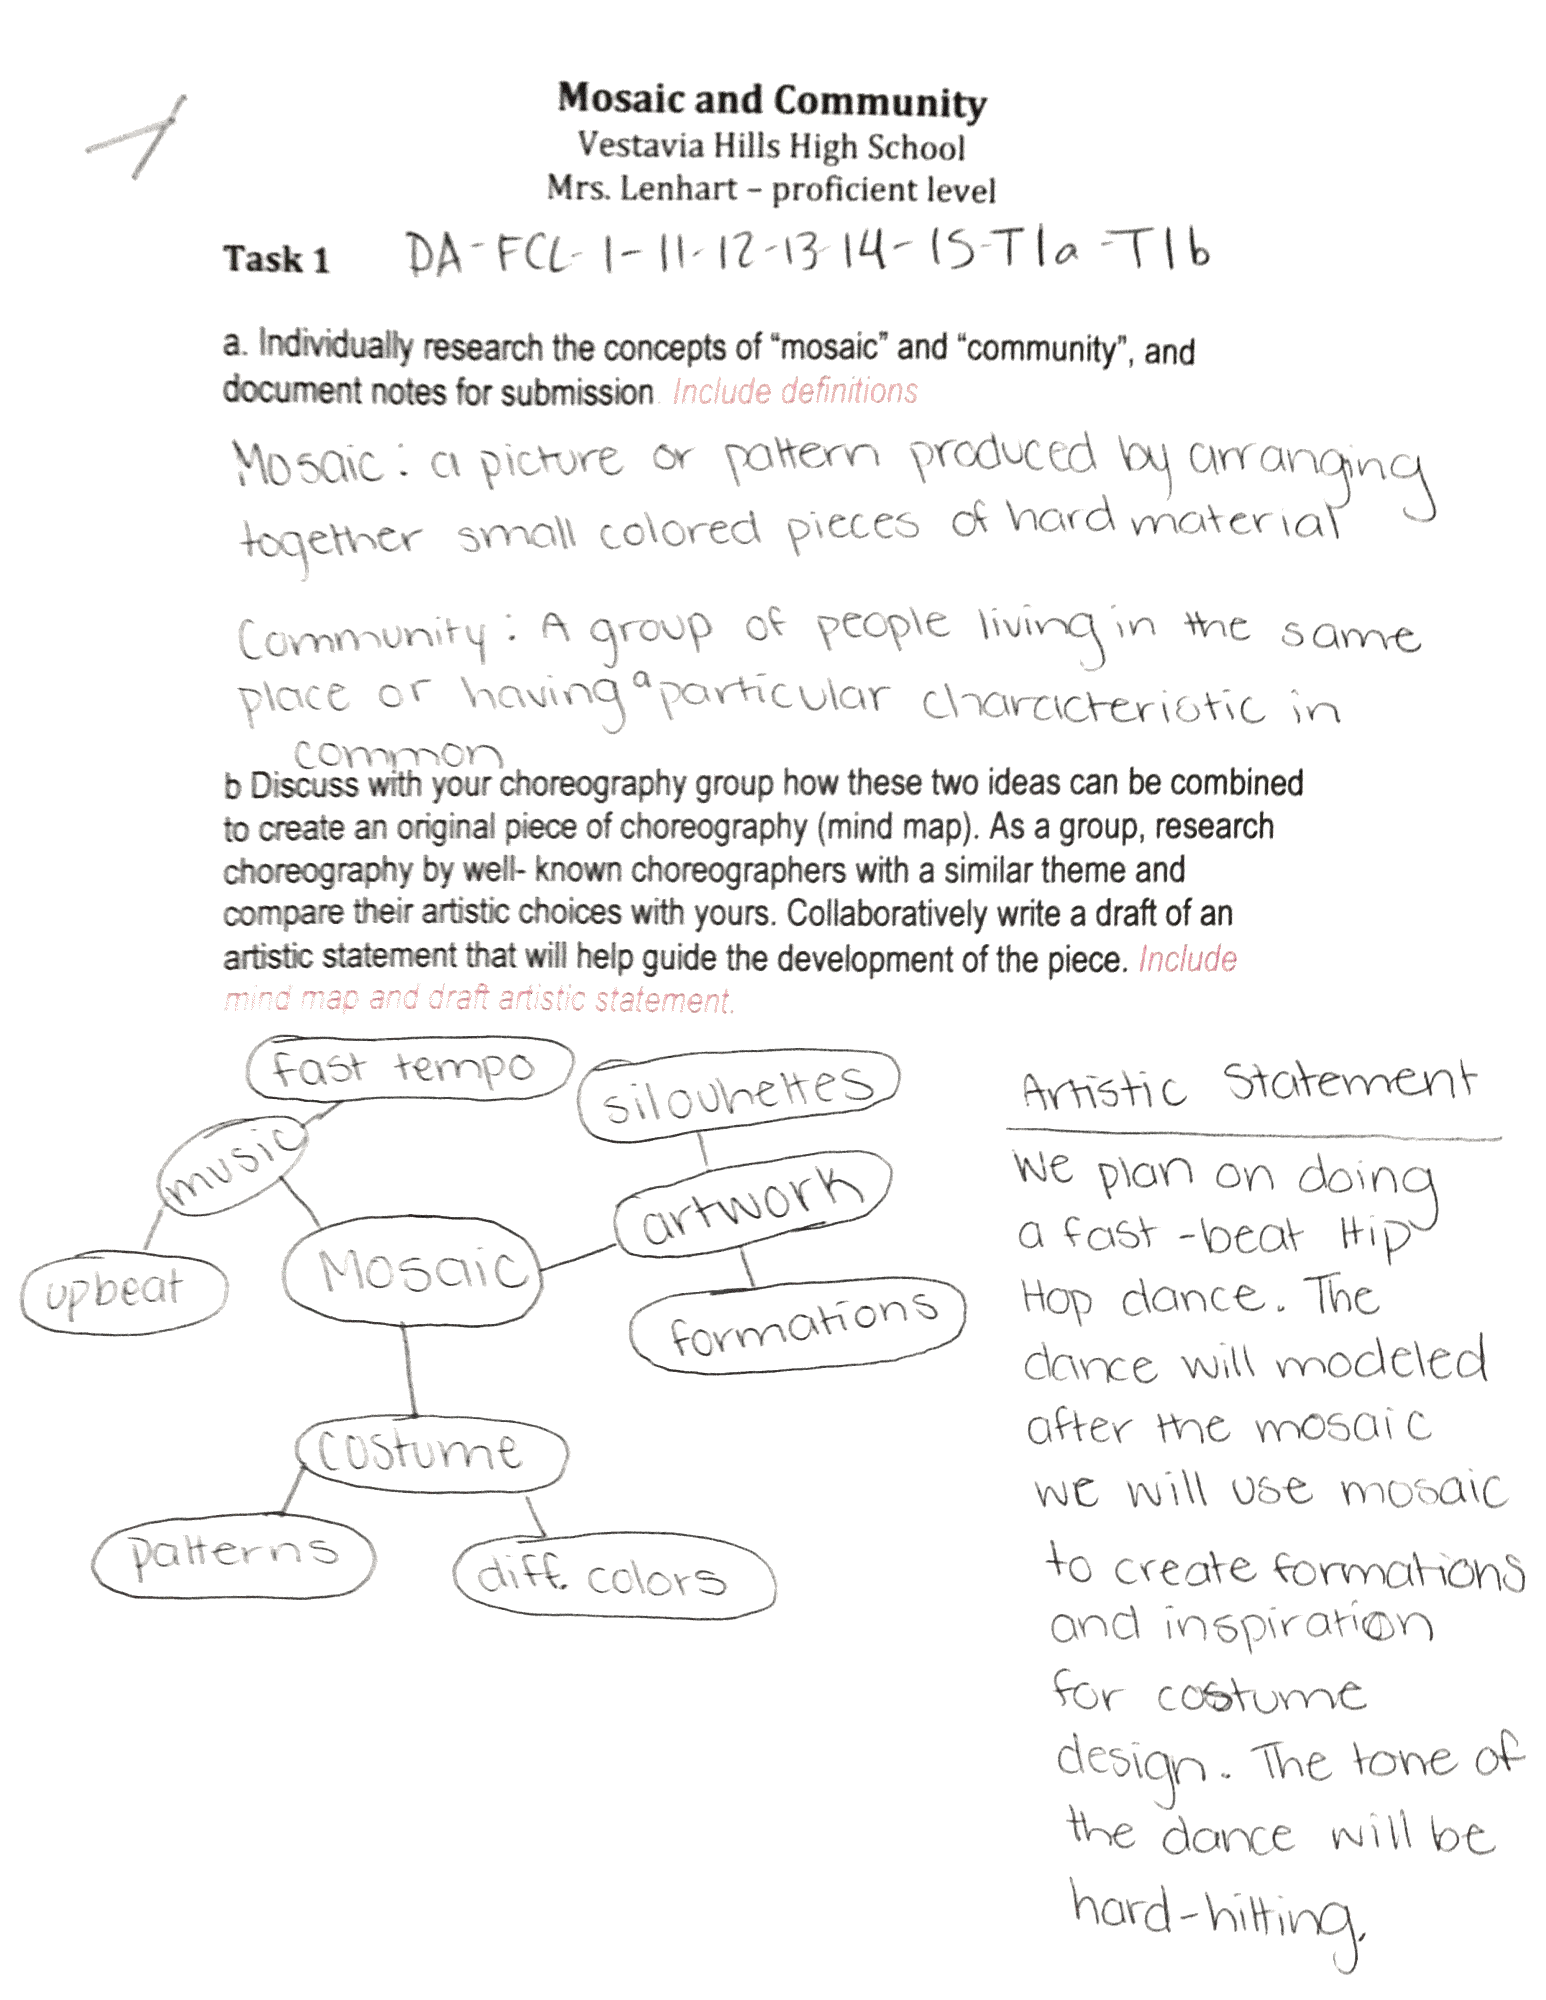 Mosaic and Community
Vestavia Hills High School
Mrs. Lenhart – proficient level
Task 1 DA-FCL-1-11-12-13-14-15-T1a-T1b
a. Individually research the concepts of “mosaic” and “community”, and
document notes for submission. Include definitions
Mosaic: a picture or pattern produced by arranging
together small colored pieces of hard material
Community: A group of people living in the same
place or having a particular characteristic in
common
b Discuss with your choreography group how these two ideas can be combined
to create an original piece of choreography (mind map). As a group, research
choreography by well- known choreographers with a similar theme and
compare their artistic choices with yours. Collaboratively write a draft of an
artistic statement that will help guide the development of the piece. Include
mind map and draft artistic statement.
fast tempo
silouhettes
music
artwork
Mosaic
upbeat
formations
costume
patterns
diff. colors
Artistic Statement
We plan on doing
a fast-beat Hip
Hop dance. The
dance will modeled
after the mosaic
we will use mosaic
to create formations
and inspiration
for costume
design. The tone of
the dance will be
hard-hitting.